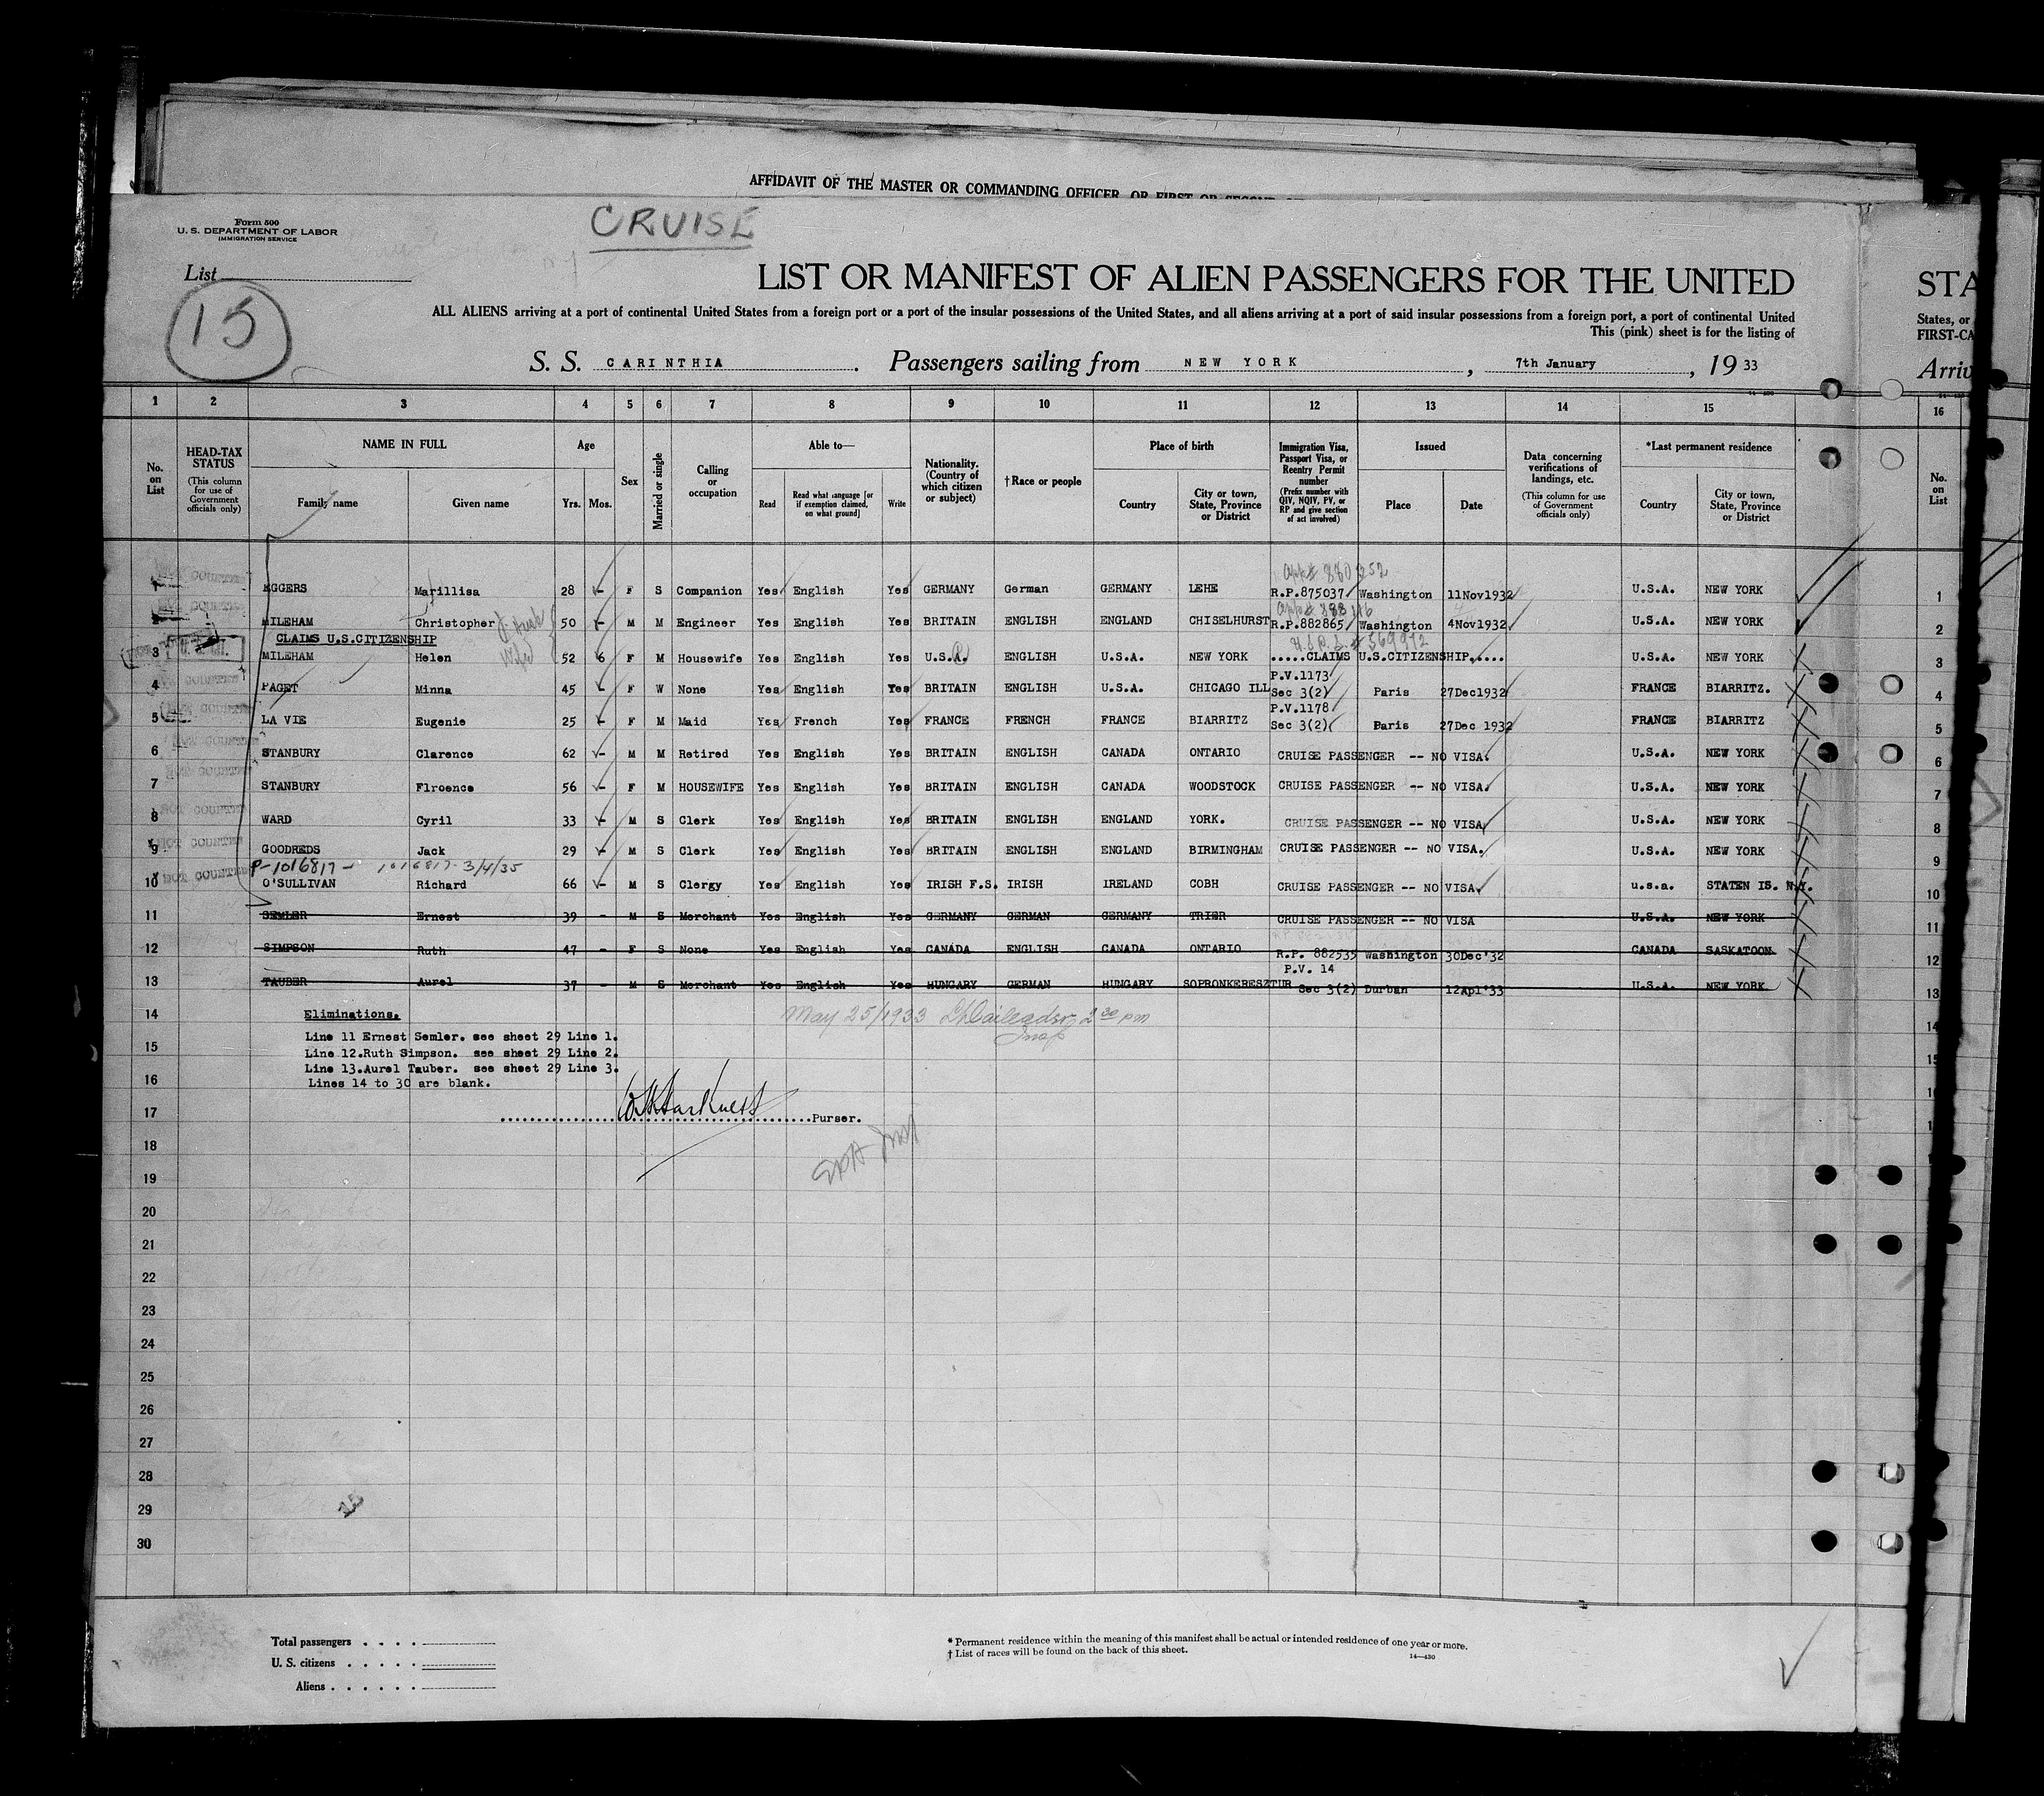 AFFIDAVIT OF THE MASTER OR COMMANDING OFFICER, OR FIRST OR SECOND
Form 500
U. S. DEPARTMENT OF LABOR
IMMIGRATION SERVICE
CRUISE
List
15
LIST OR MANIFEST OF ALIEN PASSENGERS FOR THE UNITED
STA
ALL ALIENS arriving at a port of continental United States from a foreign port or a port of the insular possessions of the United States, and all aliens arriving at a port of said insular possessions from a foreign port, a port of continental United
States, or
This (pink) sheet is for the listing of
FIRST-CA
S. S. CARINTHIA. Passengers sailing from NEW YORK, 7th January, 19 33
Arriv
1 2 3 4 5 6 7 8 9 10 11 12 13 14 15 16
No. on List
HEAD-TAX STATUS (This column for use of Government officials only)
NAME IN FULL
Family name
Given name
Age
Yrs. Mos.
Sex
Married or single
Calling or occupation
Able to—
Read
Read what language [or if exemption claimed, on what ground]
Write
Nationality. (Country of which citizen or subject)
† Race or people
Place of birth
Country
City or town, State, Province or District
Immigration Visa, Passport Visa, or Reentry Permit number (Prefix number with QIV, NQIV, PV, or RP and give section of act involved)
Issued
Place
Date
Data concerning verifications of landings, etc. (This column for use of Government officials only)
*Last permanent residence
Country
City or town, State, Province or District
No. on List
NOT COUNTED
App# 880252
1 EGGERS Marillisa 28 - F S Companion Yes English Yes GERMANY German GERMANY LEHE R.P.875037 Washington 11Nov1932 U.S.A. NEW YORK 1
NOT COUNTED
2 MILEHAM Christopher 50 - M M Engineer Yes English Yes BRITAIN ENGLISH ENGLAND CHISELHURST R.P.882865 Washington 4Nov1932 U.S.A. NEW YORK 2
CLAIMS U.S.CITIZENSHIP
3 MILEHAM Helen 52 6 F M Housewife Yes English Yes U.S.A. ENGLISH U.S.A. NEW YORK .....CLAIMS U.S.CITIZENSHIP..... U.S.A. NEW YORK 3
P.V.1173
4 PAGET Minna 45 - F W None Yes English Yes BRITAIN ENGLISH U.S.A. CHICAGO ILL Sec 3(2) Paris 27Dec1932 FRANCE BIARRITZ. 4
P.V.1178
5 LA VIE Eugenie 25 - F M Maid Yes French Yes FRANCE FRENCH FRANCE BIARRITZ Sec 3(2) Paris 27Dec 1932 FRANCE BIARRITZ 5
NOT COUNTED
6 STANBURY Clarence 62 - M M Retired Yes English Yes BRITAIN ENGLISH CANADA ONTARIO CRUISE PASSENGER -- NO VISA. U.S.A. NEW YORK 6
NOT COUNTED
7 STANBURY Flroence 56 - F M HOUSEWIFE Yes English Yes BRITAIN ENGLISH CANADA WOODSTOCK CRUISE PASSENGER -- NO VISA. U.S.A. NEW YORK 7
NOT COUNTED
8 WARD Cyril 33 - M S Clerk Yes English Yes BRITAIN ENGLISH ENGLAND YORK. CRUISE PASSENGER -- NO VISA U.S.A. NEW YORK 8
NOT COUNTED
9 GOODREDS Jack 29 - M S Clerk Yes English Yes BRITAIN ENGLISH ENGLAND BIRMINGHAM CRUISE PASSENGER -- NO VISA. U.S.A. NEW YORK 9
P-1016817- 1016817-3/4/35
NOT COUNTED
10 O'SULLIVAN Richard 66 - M S Clergy Yes English Yes IRISH F.S. IRISH IRELAND COBH CRUISE PASSENGER -- NO VISA. u.s.a. STATEN IS. N.Y. 10
11 SEMLER Ernest 39 - M S Merchant Yes English Yes GERMANY GERMAN GERMANY TRIER CRUISE PASSENGER -- NO VISA U.S.A. NEW YORK 11
12 SIMPSON Ruth 47 - F S None Yes English Yes CANADA ENGLISH CANADA ONTARIO R.P. 882535 Washington 30Dec'32 CANADA SASKATOON 12
P.V. 14
13 TAUBER Aurel 37 - M S Merchant Yes English Yes HUNGARY GERMAN HUNGARY SOPRONKERESZTUR Sec 3(2) Durban 12Apl'33 U.S.A. NEW YORK 13
14 Eliminations. May 25/1933 2 30 pm 14
Line 11 Ernest Semler. see sheet 29 Line 1.
15 Line 12.Ruth Simpson. see sheet 29 Line 2. 15
Line 13.Aurel Tauber. see sheet 29 Line 3.
16 Lines 14 to 30 are blank.
17 Purser.
18
19
20
21
22
23
24
25
26
27
28
29
30
Total passengers . . . .
U. S. citizens . . . . .
Aliens . . . . . .
* Permanent residence within the meaning of this manifest shall be actual or intended residence of one year or more.
† List of races will be found on the back of this sheet.
14—430